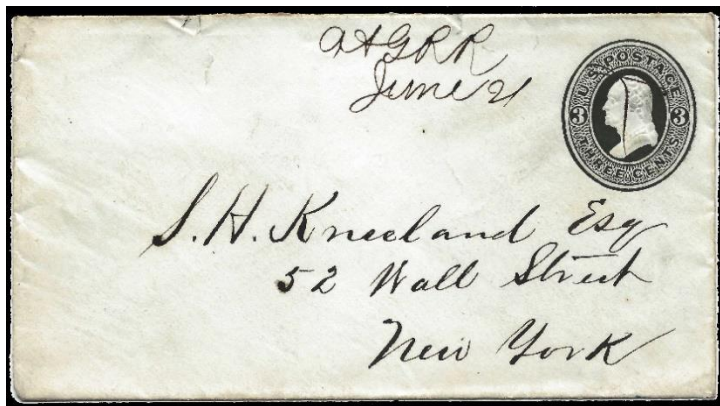 A & G R R
June 21
U.S. POSTAGE
3 3
THREE CENTS
S. H. Kneeland Esq
52 Wall Street
New York